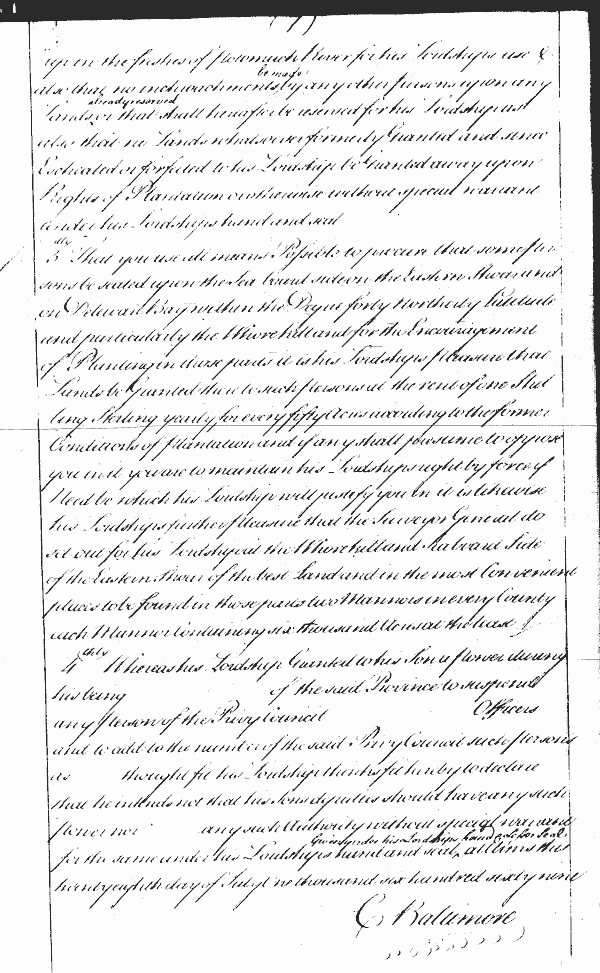 (7)
up in the freshes of Potomack River for his Lordships use &
also that no incroachments be made by any other persons upon any
Lands already reserved or that shall hereafter be reserved for his Lordship as
also that no Lands whatsoever formerly Granted and since
Escheated or forfeited to his Lordship be Granted away upon
Rights of Plantation or otherwise without special warrant
under his Lordships hand and seal
3dly That you use all means Possible to procure that some per
sons be seated upon the Sea board side on the Eastern Shoar and
on Delaware Bay within the Degree forty Northerly Latitude
and particularly the Whorekill and for the Encouragement
of Planting in those parts it is his Lordships pleasure that
Lands be Granted there to such persons at the rent of one Shil
ling Sterling yearly for every fifty Acres according to the former
Conditions of plantation and if any shall presume to oppose
you in it you are to maintain his Lordships right by force if
Need be which his Lordship will justify you in it is likewise
his Lordships further pleasure that the Surveyor General do
set out for his Lordship at the Whorekill and Seaboard Side
of the Eastern Shoar of the best Land and in the most Convenient
places to be found in those parts two Mannors in every County
each Mannor Containing six thousand Acres at the least
4thly Whereas his Lordship Granted to his Son a power during
his being of the said Province to suspend
any person of the Privy Council Officers
and to add to the number of the said Privy Council such persons
as thought fit his Lordship thinks fit hereby to declare
that he intends not that his Sons deputies should have any such
power nor any such Authority without special warrant
for the same under his Lordships hand and seal Given under his Lordships hand & Lesser Seal at Arms this
twenty eighth day of July one thousand six hundred sixty nine
C Baltimore